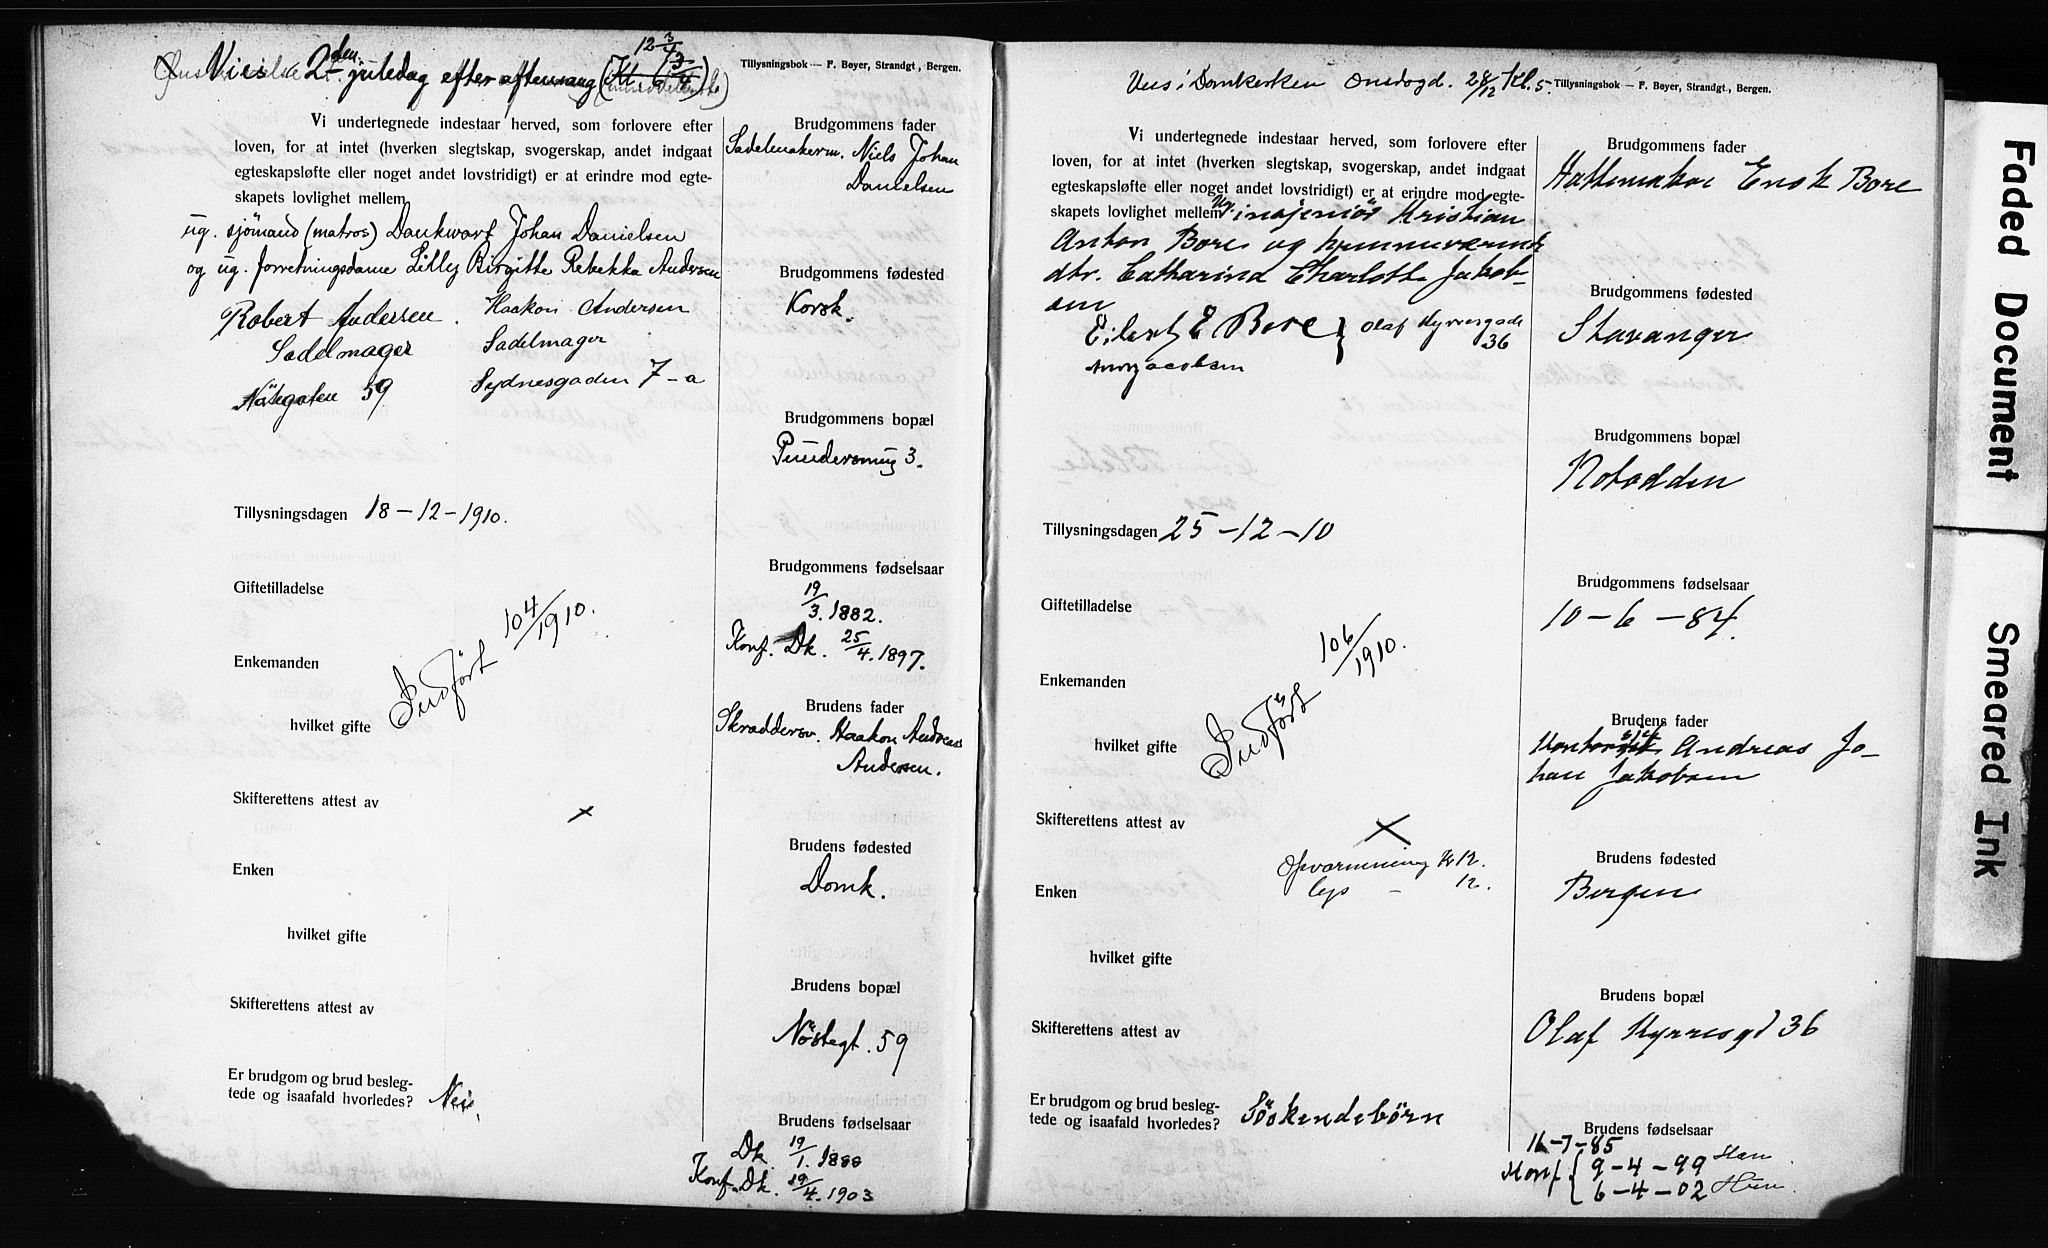 Vies 2den juledag efter aftensang
12 3/4
Tillysningsbok — F. Beyer, Strandgt., Bergen.
Vi undertegnede indestaar herved, som forlovere efter
loven, for at intet (hverken slegtskap, svogerskap, andet indgaat
egteskapsløfte eller noget andet lovstridigt) er at erindre mod egte-
skapets lovlighet mellem
ug. sjömand (matros) Dankwart Johan Danielsen
og ug. forretningsdame Lilly Birgitte Rebekka Andersen
Robert Andersen. Haakon Andersen
Sadelmager Sadelmager
Nöstegaten 59 Sydnesgaden 7-a
Tillysningsdagen 18-12-1910.
Giftetilladelse
Enkemanden
hvilket gifte
Indført 104/1910.
Skifterettens attest av
Enken
hvilket gifte
Skifterettens attest av
Er brudgom og brud besleg-
tede og isaafald hvorledes? Nei.
Brudgommens fader
Sadelmakerm. Niels Johan
Danielsen
Brudgommens fødested
Korsk.
Brudgommens bopæl
3.
Brudgommens fødselsaar
19/3. 1882.
Konf. Dk. 25/4. 1897.
Brudens fader
Skræddersv. Haakon Andreas
Andersen.
Brudens fødested
Domk.
Brudens bopæl
Nöstegt. 59
Brudens fødselsaar
Dk. 19/1. 1888
Konf. Dk. 19/4. 1903
Vies i Domkirken Onsdagd. 28/12 Kl. 5.
Tillysningsbok — F. Beyer, Strandgt., Bergen.
Vi undertegnede indestaar herved, som forlovere efter
loven, for at intet (hverken slegtskap, svogerskap, andet indgaat
egteskapsløfte eller noget andet lovstridigt) er at erindre mod egte-
skapets lovlighet mellem Ug. insjeniör Kristian
Anton Bore og hjemmeværende
dtr. Catharina Charlotte Jakob-
sen
Eilert E Bore } Olaf Kyrresgade
36
Jacobsen
Tillysningsdagen 25-12-10
Giftetilladelse
Enkemanden
hvilket gifte
Indført 106/1910.
Skifterettens attest av
Opvarmning Kr 12.
lys - 12.
Enken
hvilket gifte
Skifterettens attest av
Er brudgom og brud besleg-
tede og isaafald hvorledes? Söskendebörn
Brudgommens fader
Hattemaker Enok Bore
Brudgommens fødested
Stavanger
Brudgommens bopæl
Notodden
Brudgommens fødselsaar
10-6-84.
Brudens fader
Andreas Jo-
han Jakobsen
Brudens fødested
Bergen
Brudens bopæl
Olaf Kyrresgd 36
Brudens fødselsaar
16-7-85
Konf { 9-4-99 Han
6-4-02 Hun.
Faded Document
Smeared Ink